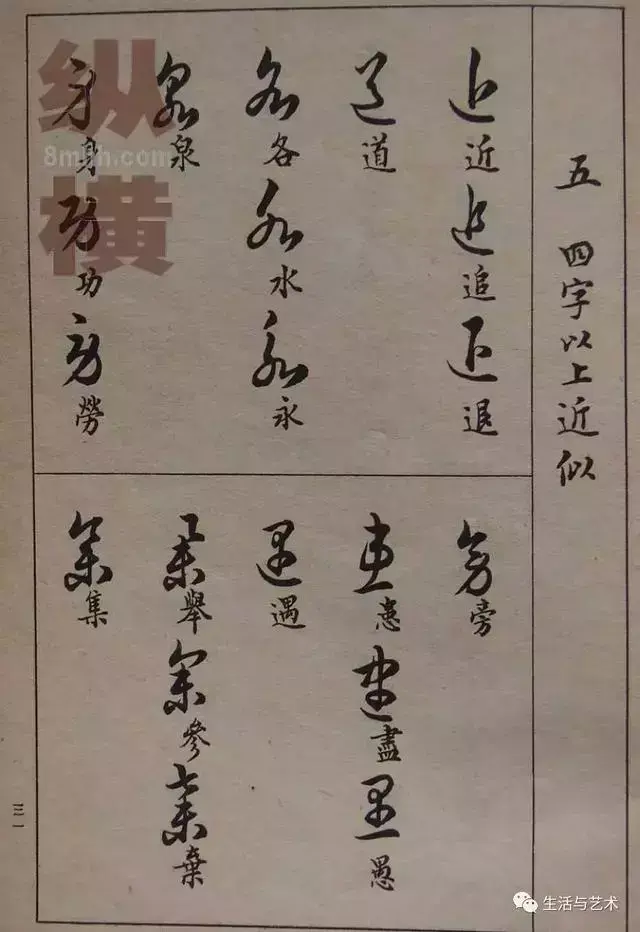 五 四字以上近似
近 追 退
道
各 水 永
泉
身 功 勞
旁
患 盡 愚
遇
舉 參 棄
集
三一
纵横
生活与艺术